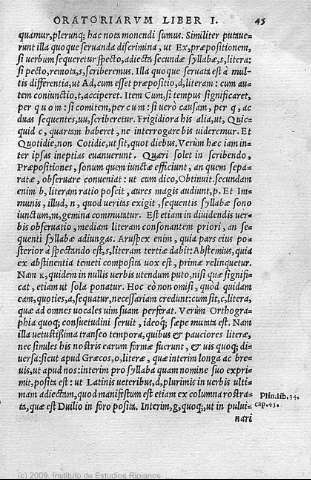 ORATORIARVM LIBER I. 45
quamur, plerunq; hac nota monendi sumus. Similiter putaue-
runt illa quoque seruanda discrimina, ut Ex, præpositionem,
si uerbum sequeretur specto, adiecta secundæ syllabæ, s, litera:
si pecto, remota, s, scriberemus. Illa quoque seruata est à mul-
tis differentia, ut Ad, cum esset præpositio, d, literam: cum au-
tem coniunctio, t, acciperet. Item Cum, si tempus significaret,
per q u o m: si comitem, per c u m: si uerò causam, per q, ac
duas sequentes, uu, scriberetur. Frigidiora his alia, ut, Quic-
quid c, quartam haberet, ne interrogare bis uideremur. Et
Quotidie, non Cotidie, ut sit, quot diebus. Verùm hæc iam in-
ter ipsas ineptias euanuerunt. Quæri solet in scribendo,
Præpositiones, sonum quem iunctæ efficiunt, an quem sepa-
ratæ, obseruare conueniat: ut cum dico, Obtinuit. secundam
enim b, literam ratio poscit, aures magis audiunt, p. Et Im-
munis, illud, n, quod ueritas exigit, sequentis syllabæ sono
iunctum, m, gemina commutatur. Est etiam in diuidendis uer-
bis obseruatio, mediam literam consonantem priori, an se-
quenti syllabæ adiungas. Aruspex enim, quia pars eius pos-
terior à spectando est, s, literam tertiæ dabit: Abstemius, quia
ex abstinentia temeti composita uox est, primæ relinquetur.
Nam x, quidem in nullis uerbis utendum puto, nisi quæ signifi-
cat, etiam ut sola ponatur. Hoc eò non omisi, quòd quidam
eam, quoties, a, sequatur, necessariam credunt: cum sit, c, litera,
quæ ad omnes uocales uim suam perferat. Verùm Orthogra-
phia quoq; consuetudini seruit, ideoq; sæpe mutata est. Nam
illa uetustissima transeo tempora, quibus & pauciores literæ,
nec similes his nostris earum formæ fuerunt, & uis quoq; di-
uersa: sicut apud Græcos, o, literæ, quæ interim longa ac bre-
uis, ut apud nos: interim pro syllaba quam nomine suo expri-
mit, posita est: ut Latinis ueteribus, d, plurimis in uerbis ulti-
mam adiectam, quod manifestum est etiam ex columna rostra-
ta, quæ est Duilio in foro posita. Interim, g, quoq;, ut in pului-
nari
Plin. lib. 34.
cap. 5.
(c) 2009, Instituto de Estudios Riojanos